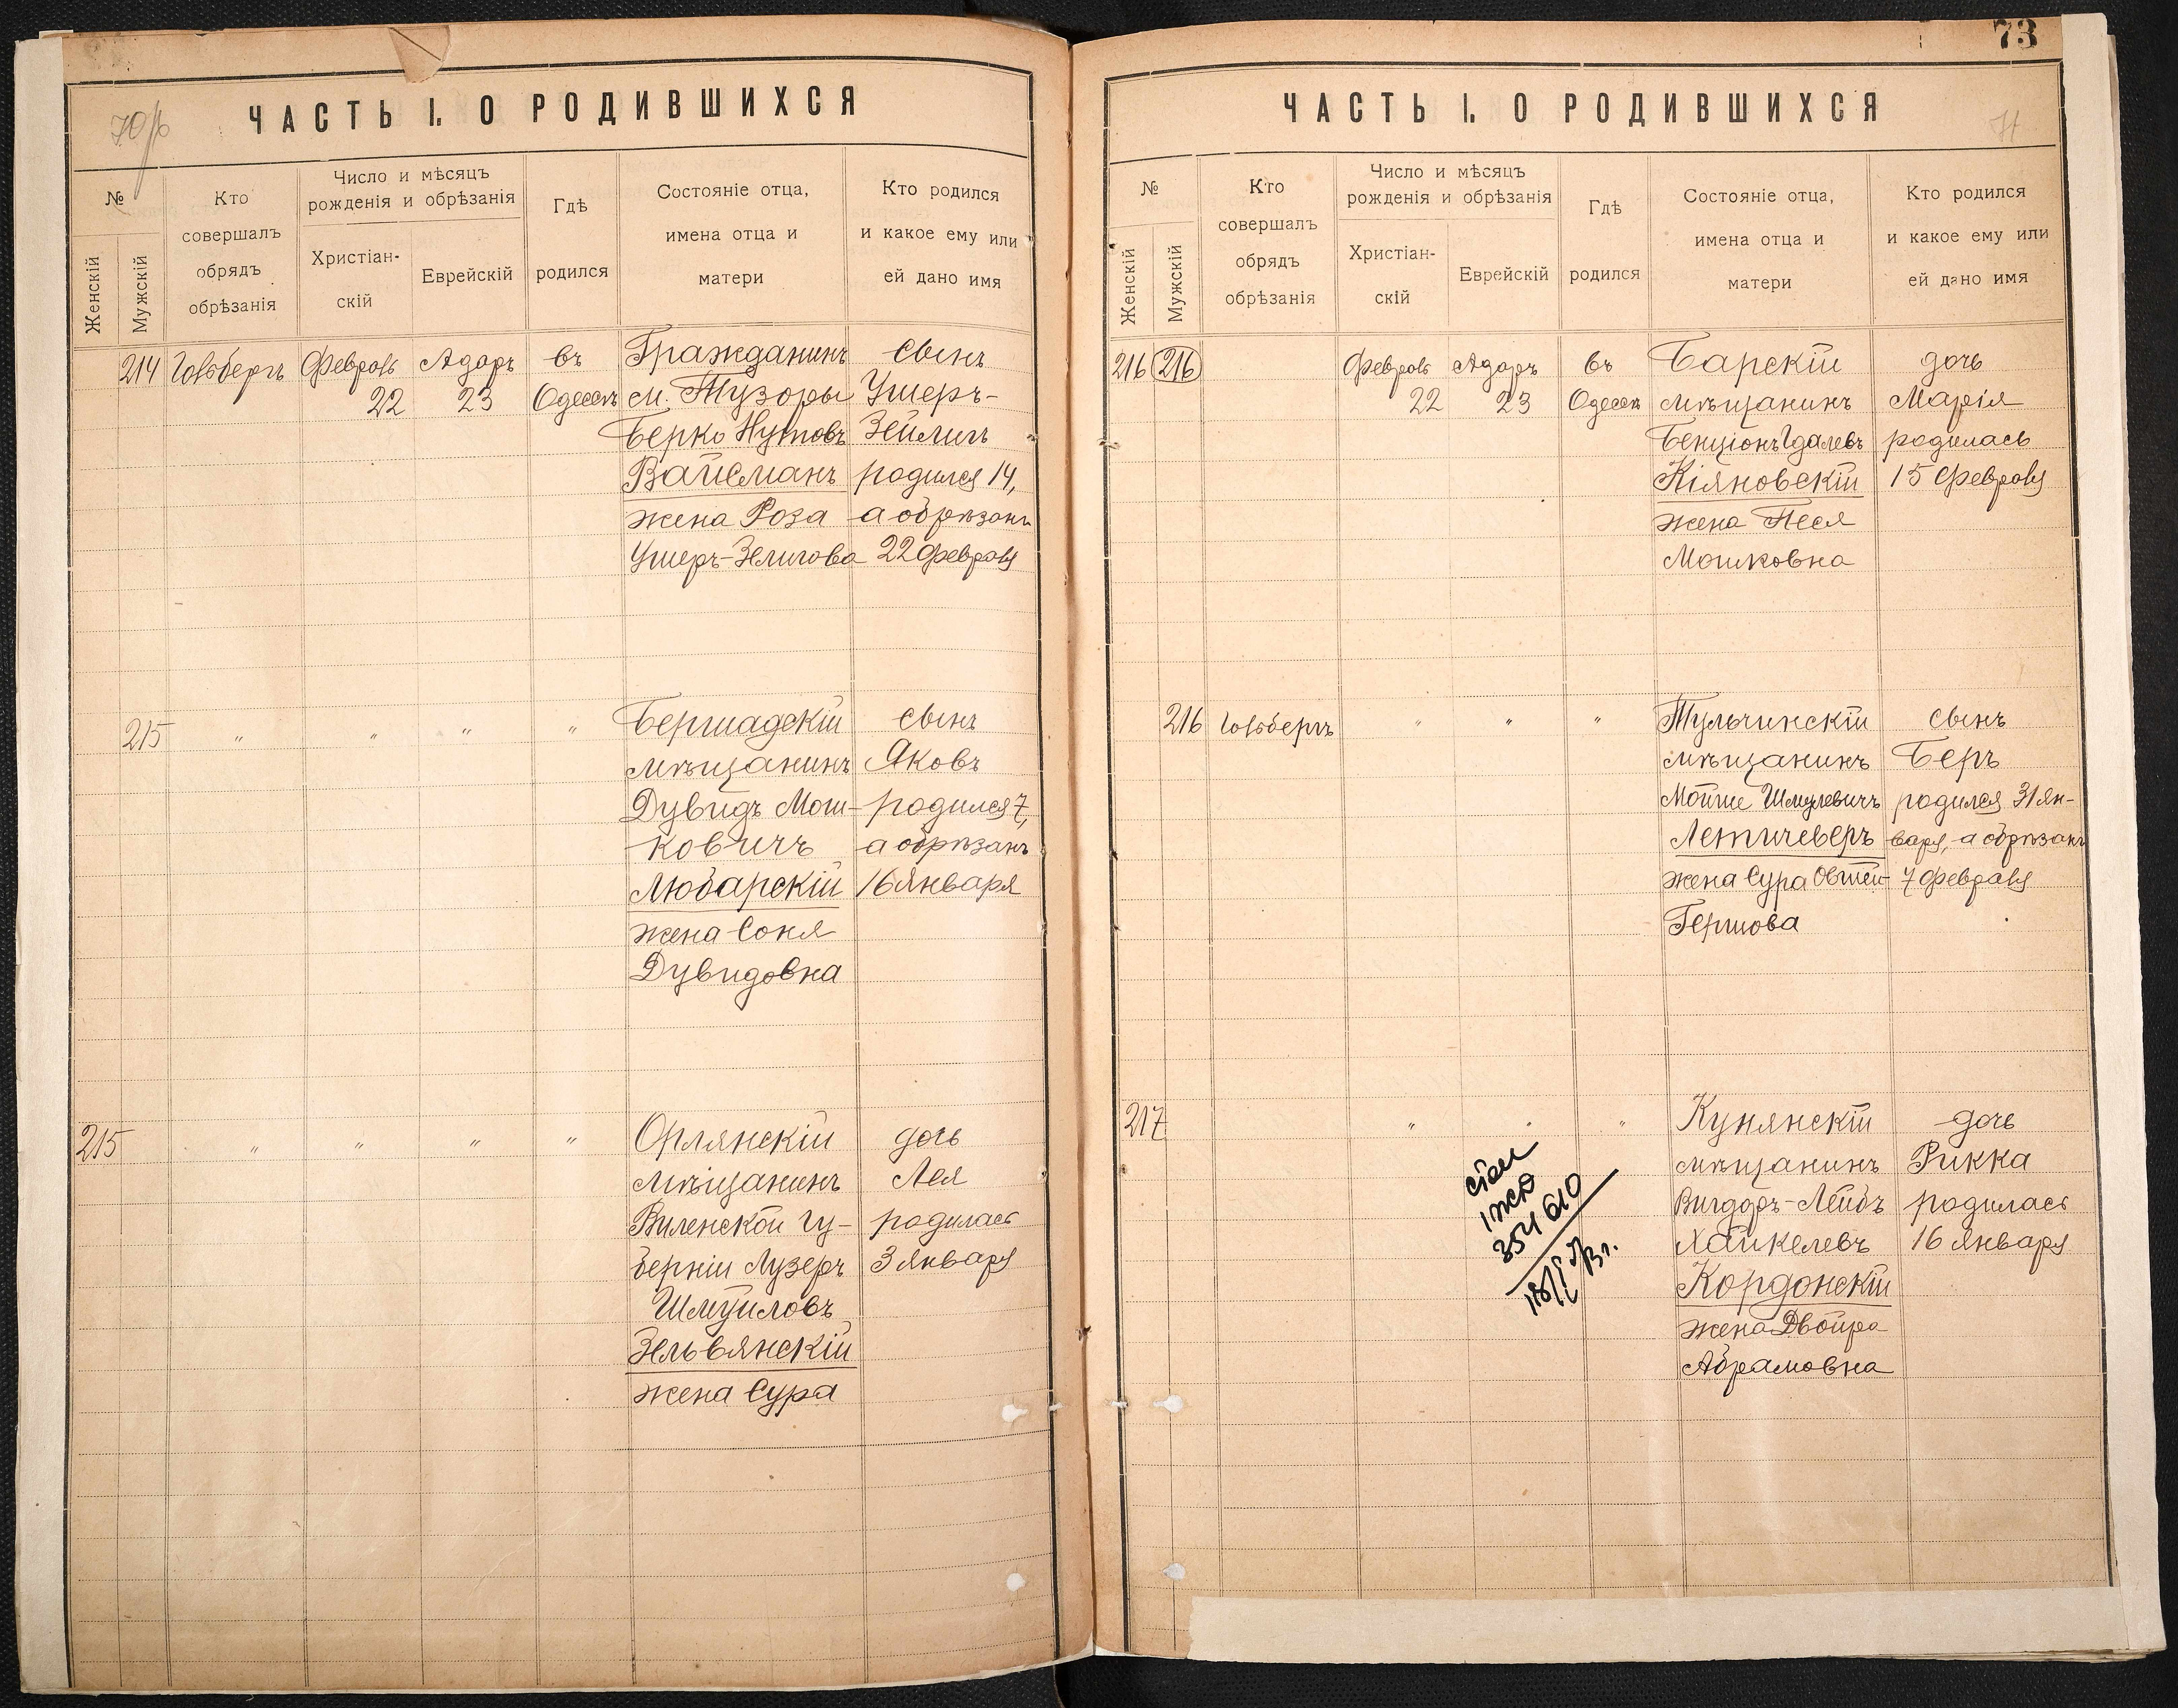 70/b
ЧАСТЬ I. О РОДИВШИХСЯ
№
Женскій
Мужскій
Кто
совершалъ
обрядъ
обрѣзанія
Число и мѣсяцъ
рожденія и обрѣзанія
Христіан-
скій
Еврейскій
Гдѣ
родился
Состояніе отца,
имена отца и
матери
Кто родился
и какое ему или
ей дано имя
214 Февраль Адаръ въ Гражданинъ сынъ
22 23 Одессѣ м. Тузоры Ушеръ-
Берко Нутовъ Зейлигъ
Вайсманъ родился 14,
жена Роза а обрѣзанъ
Ушеръ-Зелигова 22 Февраля
215 " " " " Бершадскій сынъ
мѣщанинъ Яковъ
Дувидъ Мош- родился 7,
ковичъ а обрѣзанъ
Любарскій 16 Января
жена Соня
Дувидовна
215 " " " " Орлянскій дочь
мѣщанинъ Лея
Виленской гу- родилась
берніи Лузеръ 3 Января
Шмуиловъ
Зельвянскій
жена Сура
73
71
ЧАСТЬ I. О РОДИВШИХСЯ
№
Женскій
Мужскій
Кто
совершалъ
обрядъ
обрѣзанія
Число и мѣсяцъ
рожденія и обрѣзанія
Христіан-
скій
Еврейскій
Гдѣ
родился
Состояніе отца,
имена отца и
матери
Кто родился
и какое ему или
ей дано имя
216 216 Февраль Адаръ въ Барскій дочь
22 23 Одессѣ мѣщанинъ Марія
Бенціонъ Гдалевъ родилась
Кіяновскій 15 Февраля
жена Песя
Мошковна
216 " " " Тульчинскій сынъ
мѣщанинъ Беръ
Мойше Шмулевичъ родился 31 Ян-
Летичеверъ варя, а обрѣзанъ
жена Сура 7 Февраля
Гершова
217 " " " Кунянскій дочь
мѣщанинъ Рикка
Вигдоръ-Лейбъ родилась
Хайкелевъ 16 Января
Кордонскій
жена Двойра
Абрамовна